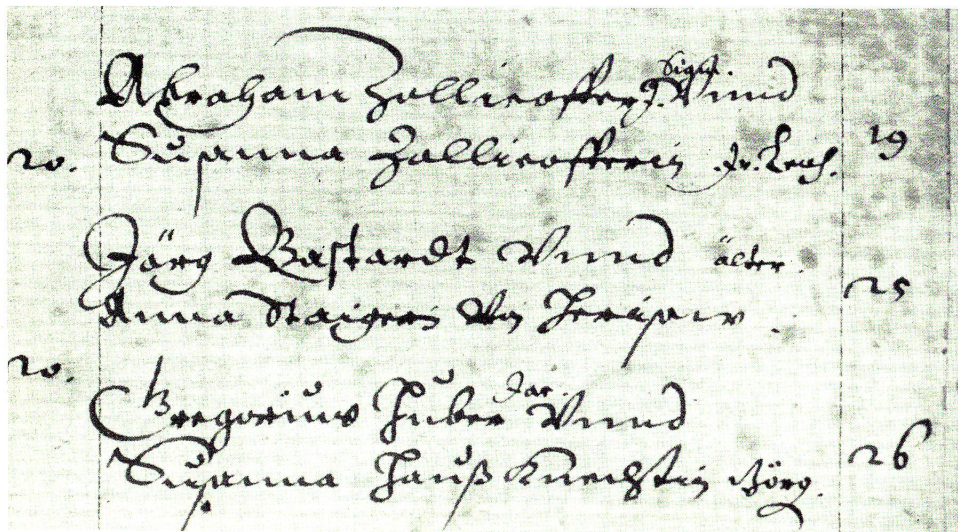 Abraham Zollicoffer J. Sigk. Vnnd
20. Susanna Zollicofferin Jr. Leoh. 19
Jörg Bastardt Vnnd älter.
Anna Staigerin Von Herisaw. 25
20.
Gregorius Huber Jac. Vnnd
Susanna Hauß Knechtin Görg. 26